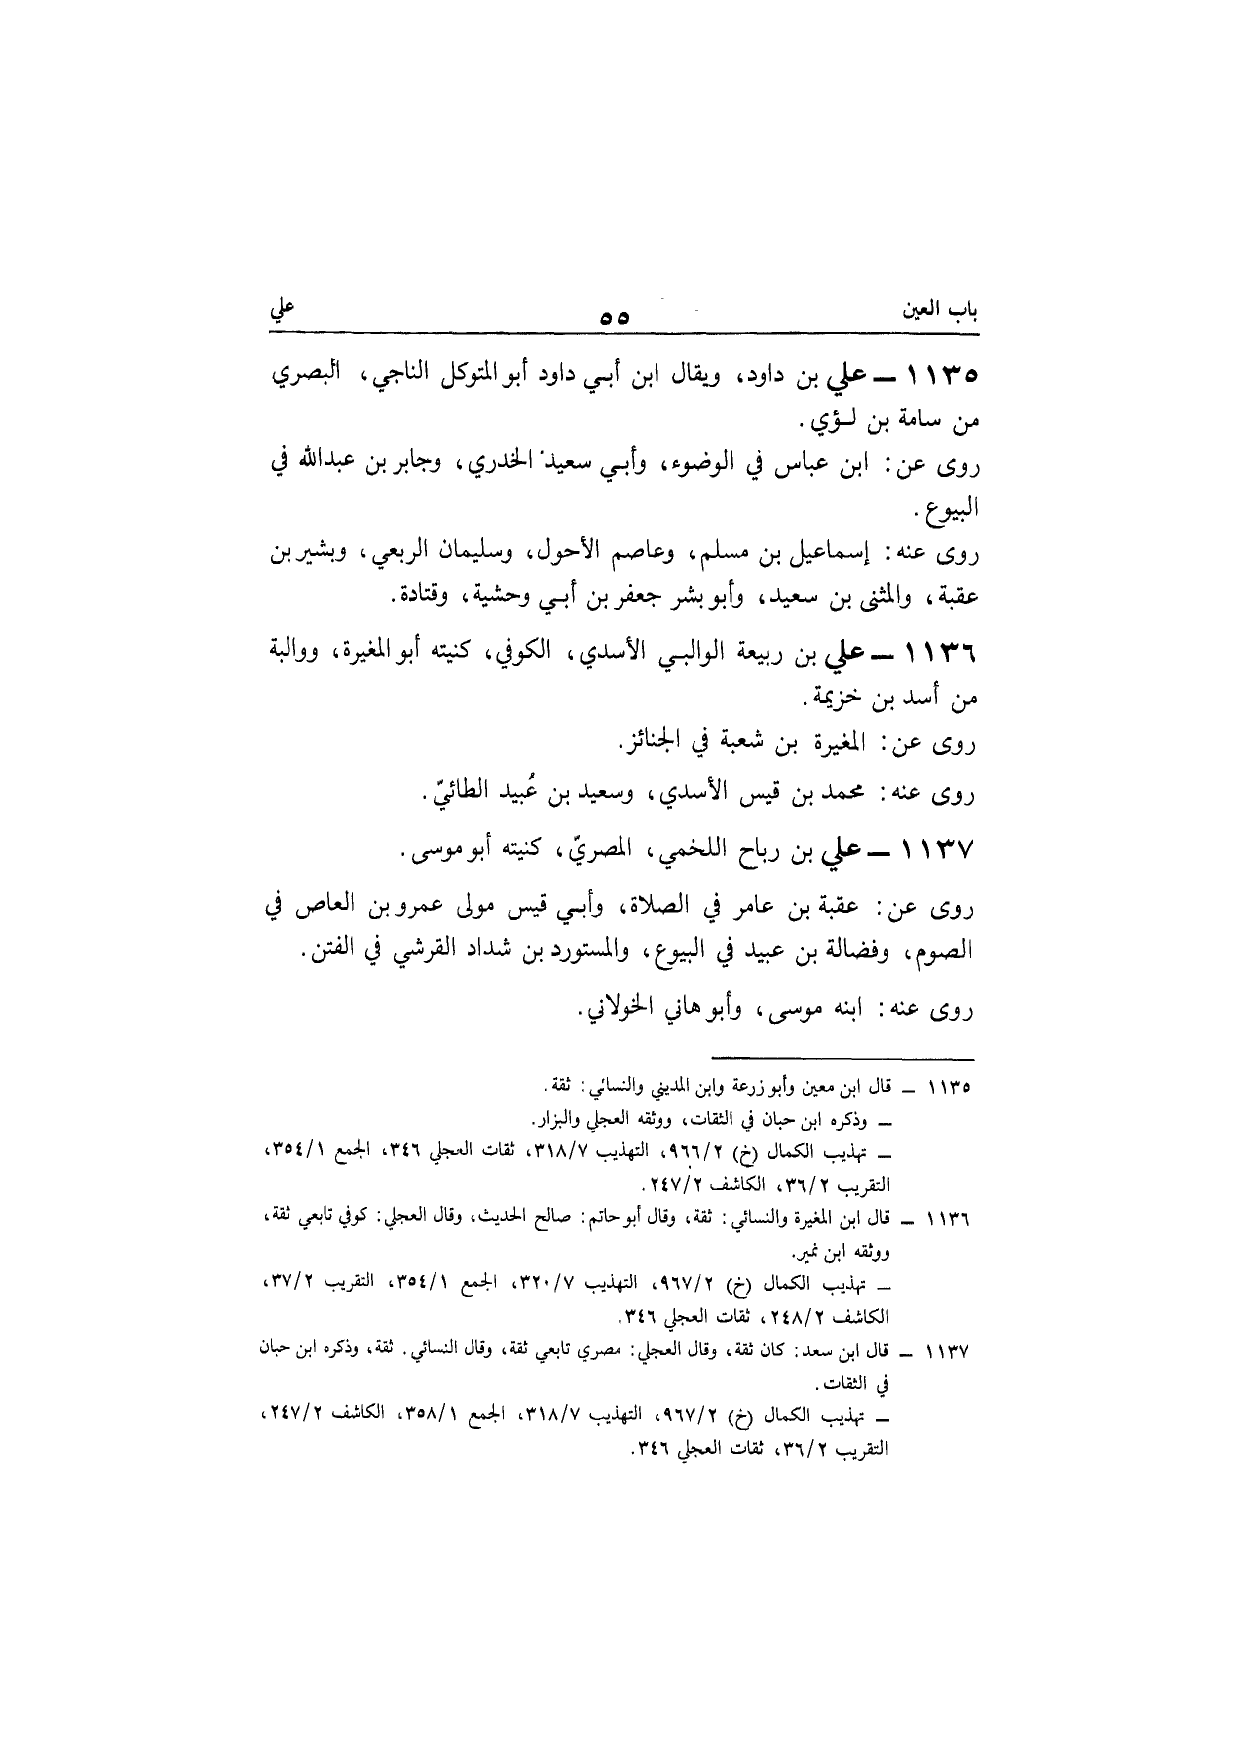 باب العين ٥٥ علي
١١٣٥ ــ علي بن داود، ويقال ابن أبـي داود أبو المتوكل الناجي، البصري
من سامة بن لـؤي.
روى عن: ابن عباس في الوضوء، وأبـي سعيد الخدري، وجابر بن عبدالله في
البيوع.
روى عنه: إسماعيل بن مسلم، وعاصم الأحول، وسليمان الربعي، وبشير بن
عقبة، والمثنى بن سعيد، وأبو بشر جعفر بن أبـي وحشية، وقتادة.
١١٣٦ ــ علي بن ربيعة الوالبـي الأسدي، الكوفي، كنيته أبو المغيرة، ووالبة
من أسد بن خزيمة.
روى عن: المغيرة بن شعبة في الجنائز.
روى عنه: محمد بن قيس الأسدي، وسعيد بن عُبيد الطائيّ.
١١٣٧ ــ علي بن رباح اللخمي، المصريّ، كنيته أبو موسى.
روى عن: عقبة بن عامر في الصلاة، وأبـي قيس مولى عمرو بن العاص في
الصوم، وفضالة بن عبيد في البيوع، والمستورد بن شداد القرشي في الفتن.
روى عنه: ابنه موسى، وأبو هاني الخولاني.
١١٣٥ ــ قال ابن معين وأبو زرعة وابن المديني والنسائي: ثقة.
ــ وذكره ابن حبان في الثقات، ووثقه العجلي والبزار.
ــ تهذيب الكمال (خ) ٩٦٦/٢، التهذيب ٣١٨/٧، ثقات العجلي ٣٤٦، الجمع ٣٥٤/١،
التقريب ٣٦/٢، الكاشف ٢٤٧/٢.
١١٣٦ ــ قال ابن المغيرة والنسائي: ثقة، وقال أبو حاتم: صالح الحديث، وقال العجلي: كوفي تابعي ثقة،
ووثقه ابن نمير.
ــ تهذيب الكمال (خ) ٩٦٧/٢، التهذيب ٣٢٠/٧، الجمع ٣٥٤/١، التقريب ٣٧/٢،
الكاشف ٢٤٨/٢، ثقات العجلي ٣٤٦.
١١٣٧ ــ قال ابن سعد: كان ثقة، وقال العجلي: مصري تابعي ثقة، وقال النسائي. ثقة، وذكره ابن حبان
في الثقات.
ــ تهذيب الكمال (خ) ٩٦٧/٢، التهذيب ٣١٨/٧، الجمع ٣٥٨/١، الكاشف ٢٤٧/٢،
التقريب ٣٦/٢، ثقات العجلي ٣٤٦.